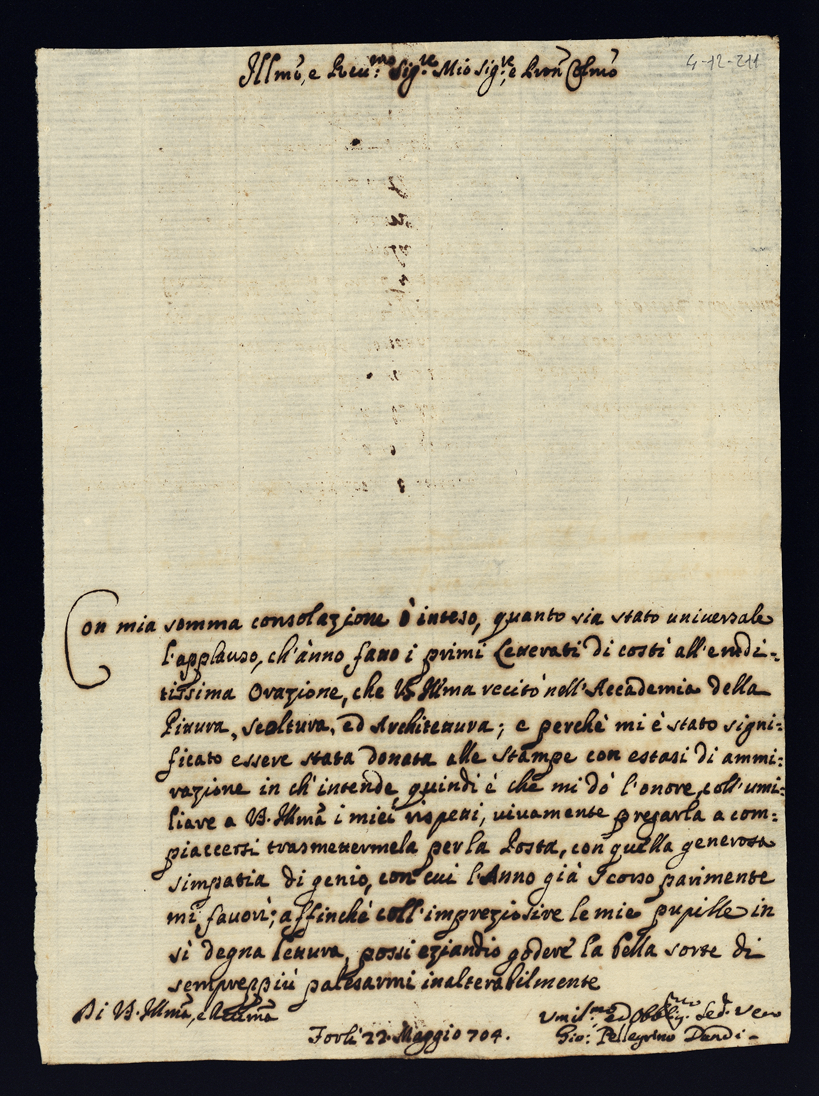 4-12-211
Illmo, e Reu.mo Sig.re Mio Sig.re, e Pron Colmo
Con mia somma consolazione ò inteso, quanto sia stato universale
l'applauso, ch'ànno fatto i primi Letterati di costì all'erudi-
tissima Orazione, che V.S. Illma recitò nell'Accademia della
Pittura, Scoltura, ed Architettura; e perchè mi è stato signi-
ficato essere stata donata alle stampe con estasi di ammi-
razione in ch'intende quindi è che mi dò l'onore, coll'umi-
liare a V.S. Illmã i miei rispetti, vivamente pregarla a com-
piaccersi trasmettermela per la Posta, con quella generosa
simpatia di genio, con cui l'Anno già scorso parimente
mi favorì; affinchè coll'impreziosire le mie pupille in
sì degna lettura, possi eziandio godere la bella sorte di
semprepiù palesarmi inalterabilmente
Di V.S. Illmã, e Reuma
Umil.mo ed Obblig.mo Sed. Vero
Forlì 22. Maggio 704.
Gio: Pellegrino Dandi